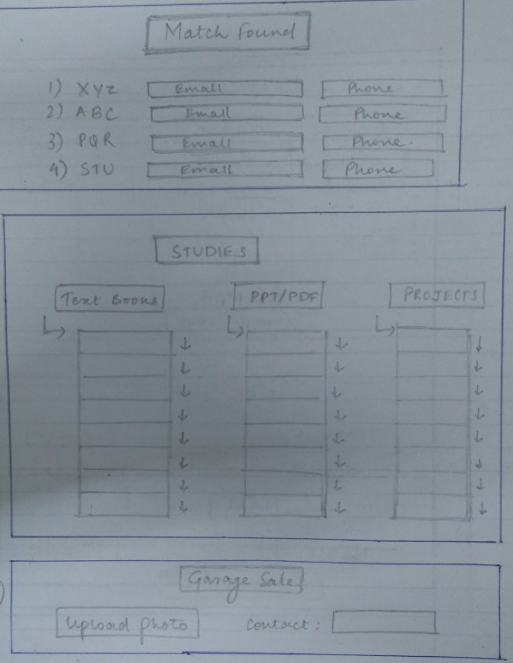 Match Found
1) XYZ Email Phone
2) ABC Email Phone
3) PQR Email Phone.
4) STU Email Phone
STUDIES
Text Books PPT/PDF PROJECTS
Garage Sale
Upload photo Contact :